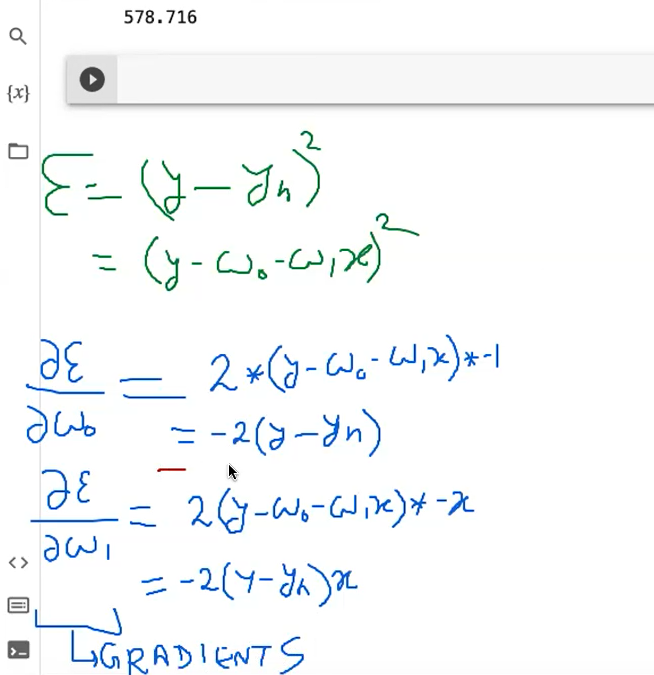 578.716
{x}
ε = (y - yₕ)²
= (y - ω₀ - ω₁x)²
∂ε/∂ω₀ = 2*(y - ω₀ - ω₁x)*-1
= -2(y - yₕ)
∂ε/∂ω₁ = 2(y - ω₀ - ω₁x)*-x
= -2(y - yₕ)x
<>
↳GRADIENTS